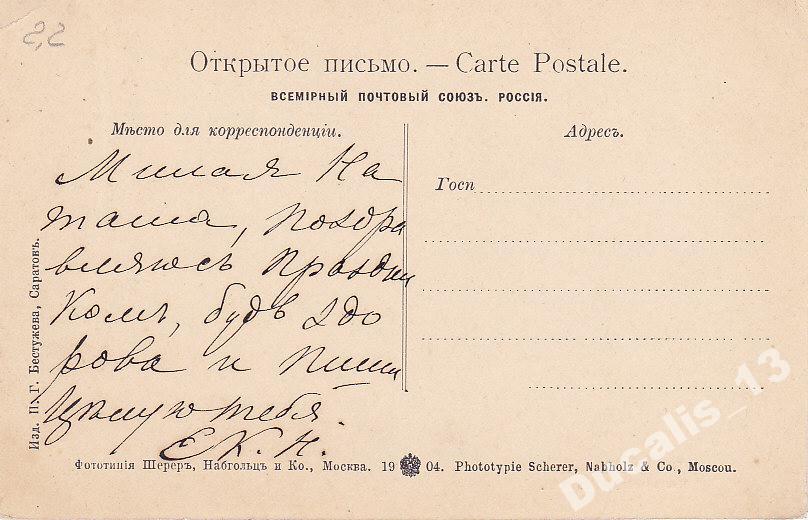 2,2
Открытое письмо. — Carte Postale.
ВСЕМІРНЫЙ ПОЧТОВЫЙ СОЮЗЪ. РОССІЯ.
Мѣсто для корреспонденціи.
Адресъ.
Милая На
таша, поздра
вляю съ праздни
комъ, будь здо
рова и пиши
Цѣлую тебя.
Е К. Н.
Госп
Изд. П. Г. Бестужева, Саратовъ.
Фототипія Шереръ, Набгольцъ и Ко., Москва. 19 04. Phototypie Scherer, Nabholz & Co., Moscou.
Ducalis_13